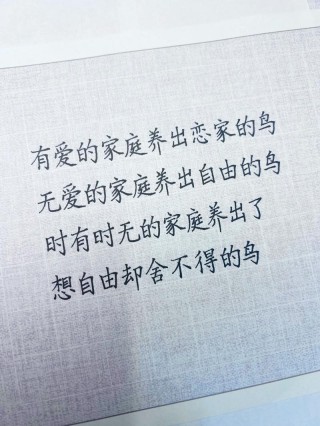 有爱的家庭养出恋家的鸟
无爱的家庭养出自由的鸟
时有时无的家庭养出了
想自由却舍不得的鸟